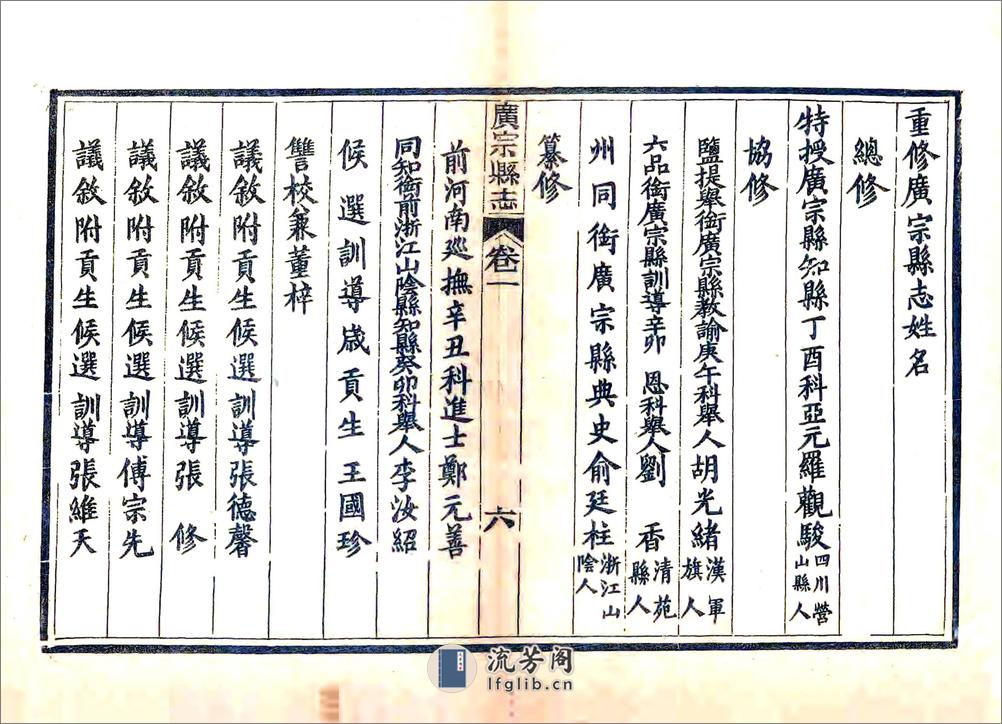 重修廣宗縣志姓名
總修
特授廣宗縣知縣丁酉科亞元羅觀駿四川營山縣人
協修
鹽提舉銜廣宗縣教諭庚午科舉人胡光緒漢軍旗人
六品銜廣宗縣訓導辛卯 恩科舉人劉 香清苑縣人
州同銜廣宗縣典史俞廷柱浙江山陰人
纂修
廣宗縣志 卷一 六
前河南廵撫辛丑科進士鄭元善
同知銜前浙江山陰縣知縣癸卯科舉人李汝紹
候選訓導歲貢生王國珍
讐校兼董梓
議敘附貢生候選訓導張德馨
議敘附貢生候選訓導張 修
議敘附貢生候選訓導傅宗先
議敘附貢生候選訓導張維天
流芳阁
lfglib.cn